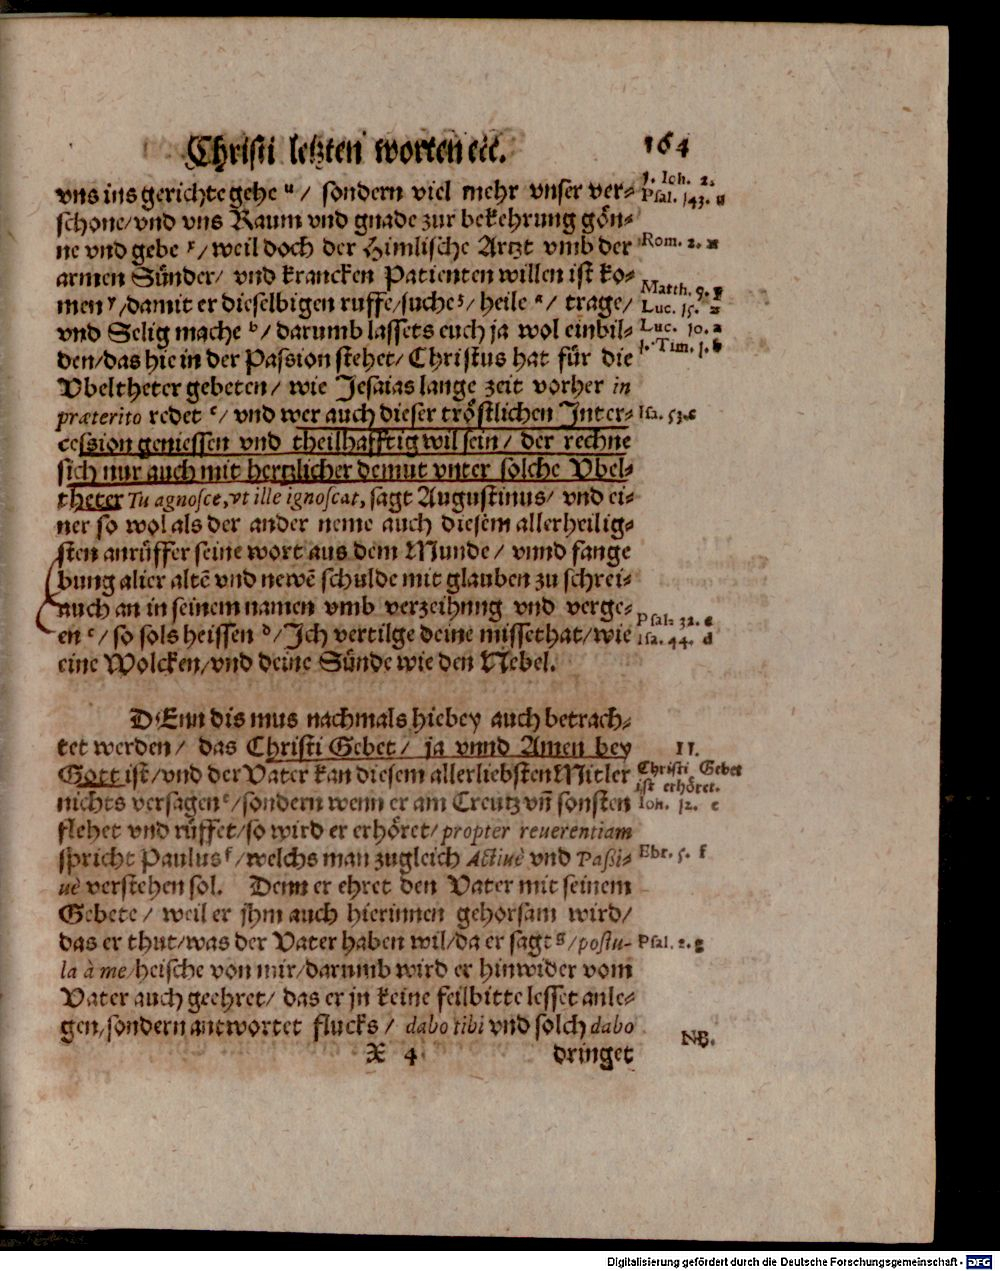 Christi letzten worten etc. 164
vns ins gerichte gehe u / sondern viel mehr vnser ver-
schone/vnd vns Raum vnd gnade zur bekehrung gön-
ne vnd gebe x/weil doch der Himlische Artzt vmb der
armen Sünder/ vnd krancken Patienten willen ist ko-
men y/damit er dieselbigen ruffe/suche z/ heile a/ trage/
vnd Selig mache b/ darumb lassets euch ja wol einbil-
den/das hie in der Passion stehet/ Christus hat für die
Vbeltheter gebeten/ wie Jesaias lange zeit vorher in
præterito redet c/ vnd wer auch dieser tröstlichen Inter-
cession geniessen vnd theilhafftig wil sein/ der rechne
sich nur auch mit hertzlicher demut vnter solche Vbel-
theter Tu agnosce, vt ille ignoscat, sagt Augustinus/ vnd ei-
ner so wol als der ander neme auch diesem allerheilig-
sten anrüffer seine wort aus dem Munde/ vnnd fange
bung aller altē vnd newē schulde mit glauben zu schrei-
auch an in seinem namen vmb verzeihung vnd verge-
en c/ so sols heissen d/ Ich vertilge deine missethat/wie
eine Wolcken/vnd deine Sünde wie den Nebel.
DEnn dis mus nachmals hiebey auch betrach-
tet werden/ das Christi Gebet/ ja vnnd Amen bey
Gott ist/vnd der Vater kan diesem allerliebsten Mitler
nichts versagen e/sondern wenn er am Creutz vñ sonsten
flehet vnd rüffet/so wird er erhöret/ propter reuerentiam
spricht Paulus f/welchs man zugleich Actiuè vnd Paßi-
uè verstehen sol. Denn er ehret den Vater mit seinem
Gebete/ weil er jhm auch hierinnen gehorsam wird/
das er thut/was der Vater haben wil/da er sagt g/postu-
la à me/heische von mir/darumb wird er hinwider vom
Vater auch geehret/ das er jn keine feilbitte lesset anle-
gen/sondern antwortet flucks/ dabo tibi vnd solch dabo
X 4 dringet
1. Ioh. 2.
Psal. 143. u
Rom. 2. x
Matth. 9. y
Luc. 15. z
Luc. 10. a
1. Tim. 1. b
Isa. 53. c
Psal. 32. c
Isa. 44. d
II.
Christi Gebet
ist erhöret.
Ioh. 12. e
Ebr. 5. f
Psal. 2. g
NB.
Digitalisierung gefördert durch die Deutsche Forschungsgemeinschaft - DFG